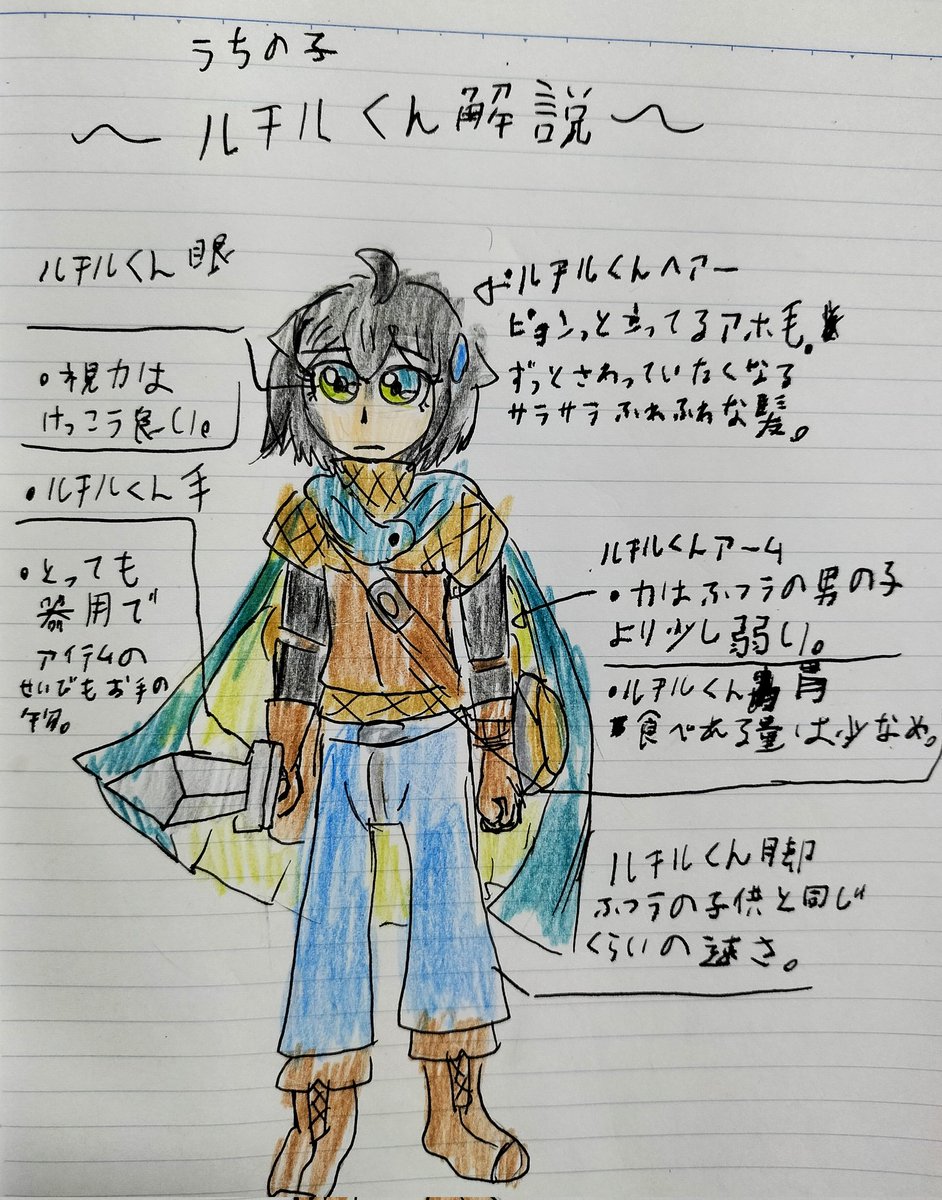 うちの子
〜ルチルくん解説〜
ルチルくん眼
・視力は
けっこう良い。
・ルチルくん手
・とっても
器用で
アイテムの
せいびもお手の
物。
ルチルくんヘアー
ピョンっと立ってるアホ毛。
ずっとさわっていたくなる
サラサラふわふわな髪。
ルチルくんアーム
・力はふつうの男の子
より少し弱い。
・ルチルくん胃
食べれる量は少なめ。
ルチルくん脚
ふつうの子供と同じ
くらいの速さ。